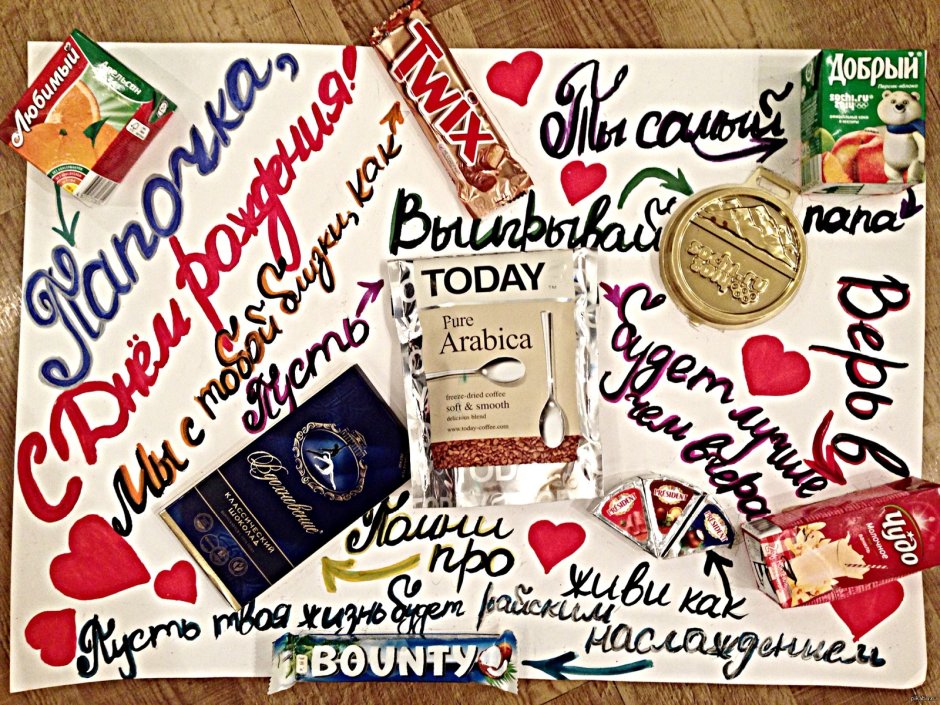 Любимый
Апельсин
Папочка,
С Днём рождения!
Мы с тобой близки, как
TWIX
Ты самый
Добрый
Персик-яблоко
sochi.ru
2014
папа
Выигрывай
sochi.ru
2014
Пусть
TODAY
Pure
Arabica
freeze-dried coffee
soft & smooth
delicious blend
www.today-coffee.com
будет лучше
чем вчера
Верь в
Чудо
Молочное
Помни
про
Вдохновение
КЛАССИЧЕСКИЙ
ШОКОЛАД
живи как
PRÉSIDENT
PRESIDENT
PRESIDENT
Пусть твоя жизнь будет райским
наслаждением
BOUNTY
pikabu.ru